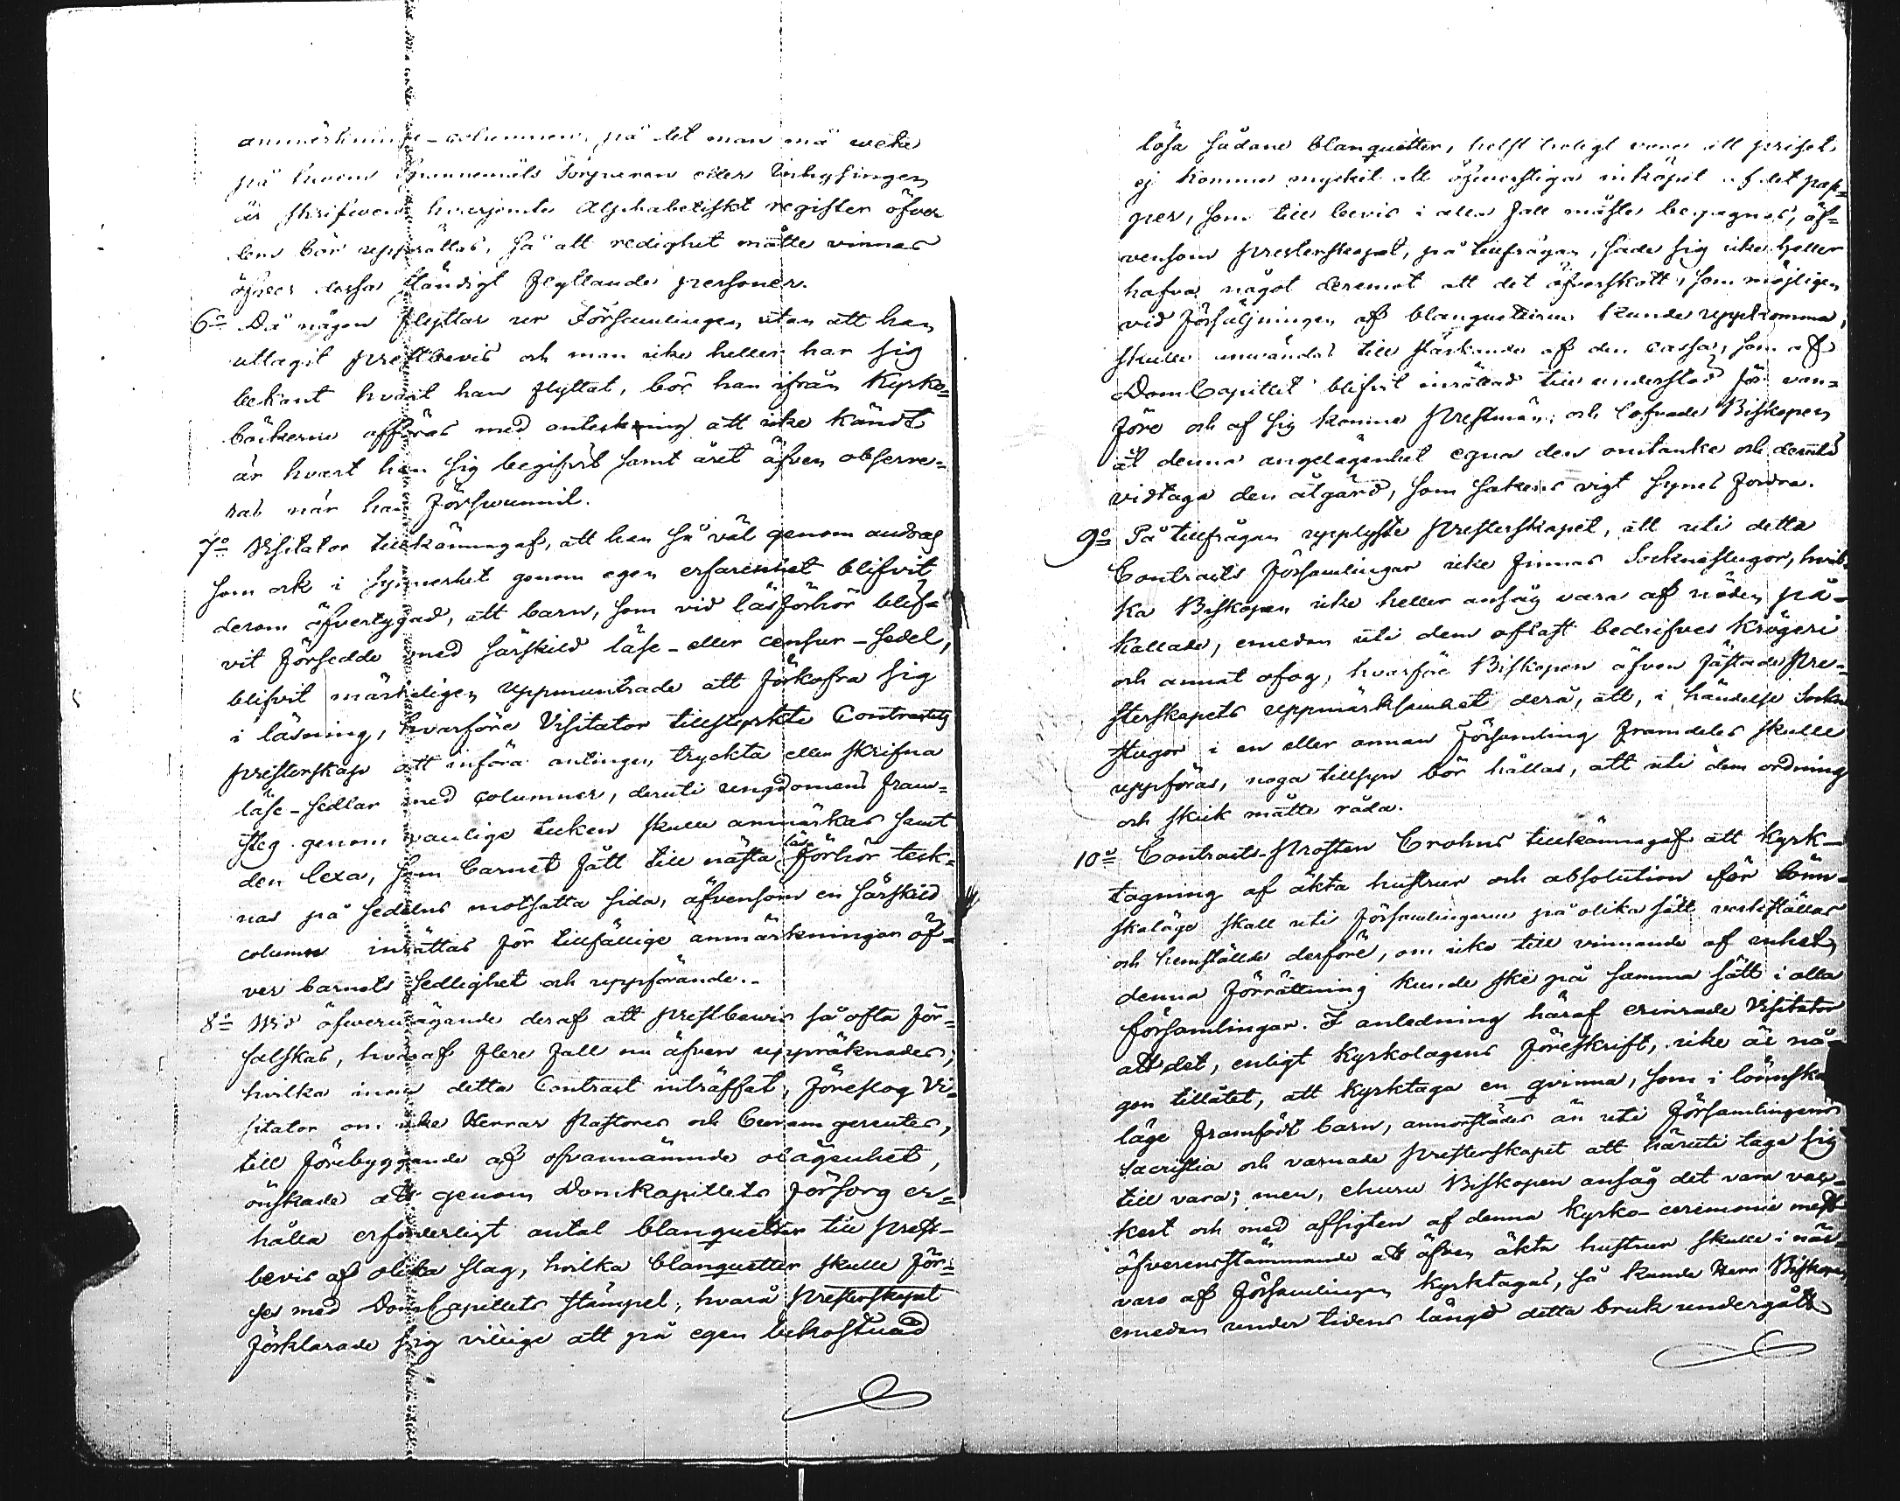 anmärknings-columnen, på det man må weta
på hvems hemmansls Torparen eller Inhysingen
är skrifven hvarjemte Alphabetiskt register öfver
dem bör upprättas, så att redighet måtte vinnas
öfver dessa ständigt flyttande personer.
6o Då någon flyttar ur Församlingen utan att han
uttagit prestbevis och man icke heller har sig
bekant hvart han flyttat, bör han ifrån Kyrko=
böckerne afföras med anteckning att icke kändt
är hvart han sig begifvit samt året äfven observe=
ras när han försvunnit.
7o Visitator tillkännagaf, att han så väl genom andras
som ock i synnerhet genom egen erfarenhet blifvit
derom öfvertygad, att barn, som vid läsförhör blif=
vit försedde med särskild läse- eller censur-sedel,
blifvit märkeligen uppmuntrade att förkofra sig
i läsning, hvarföre Visitator tillstyrkte Contractets
presterskap att införa antingen tryckta eller skrifna
läse-sedlar med columner, deruti ungdomens fram=
steg genom vanliga tecken skulle anmärkas samt
den lexa, som barnet fått till nästa läse förhör teck=
nas på sedelns motsatta sida, äfvensom en särskild
column inrättas för tillfällige anmärkningar öf=
ver barnets sedlighet och uppförande.
8o Wid öfvervägande deraf att prestbevis så ofta för=
falskas, hvaraf flere fall nu äfven uppräknades,
hvilka inom detta Contract inträffat, föreslog Vi=
sitator om icke Herrar Pastores och Curam gerentes,
till förebyggande af ofvannämnde olägenhet,
önskade att genom Domkapitlets försorg er=
hålla erforderligt antal blanquetter till prest-
bevis af olika slag, hvilka blanquetter skulle för=
ses med DomCapitlets stämpel, hvarå Presterskapet
förklarade sig villige att på egen bekostnad
lösa sådane blanquetter, helst troligt vore att priset
ej komme mycket att öfverstiga inköpet af det pap=
per, som till bevis i alla fall måste begagnas, äf=
vensom presterskapet, på tillfrågan, sade sig icke heller
hafva något deremot att det öfverskott, som möjligen
vid försäljningen af blanquetterne kunde uppkomma,
skulle användas till stärkande af den cassa, som af
DomCapitlet blifvit inrättad till understöd för van=
före och af sig komne Prestmän; och lofvade Biskopen
åt denna angelägenhet egna den omtanke och dermed
vidtaga den åtgärd, som sakens vigt synes fordra.
9o På tillfrågan upplyste Presterskapet, att uti detta
Contracts församlingar icke finnas Socknestugor, hvil=
ka Biskopen icke heller ansåg vara af nöden på-
kallade, emedan uti dem oftast bedrifves krögeri
och annat ofog, hvarföre Biskopen äfven fästade Pre=
sterskapets uppmärksamhet derå, att, i händelse Sockne
stugor i en eller annan församling framdeles skulle
uppföras, noga tillsyn bör hållas, att uti dem ordning
och skick måtte råda.
10o Contracts-Prosten Crohns tillkännagaf att kyrk-
tagning af äkta hustrur och absolution för lön=
skaläge skall uti församlingarne på olika sätt verkställas
och hemställde derföre, om icke till vinnande af enhet,
denna förrättning kunde ske på samma sätt i alla
församlingar. I anledning häraf erinrade Visitator
att det, enligt Kyrkolagens föreskrift, icke är nå=
gon tillåtet, att kyrktaga en qvinna, som i lönnska
läge framfödt barn, annorstädes än uti församlingens
Sacristia och varnade Presterskapet att häruti taga sig
till vara; men, ehuru Biskopen ansåg det vara vac=
kert och med afsigten af denna kyrko-ceremonie mest
öfverensstämmande att äfven äkta hustrur skulle i när=
varo af församlingen kyrktagas, så kunde Herr Biskopen
emedan under tidens längd detta bruk undergått